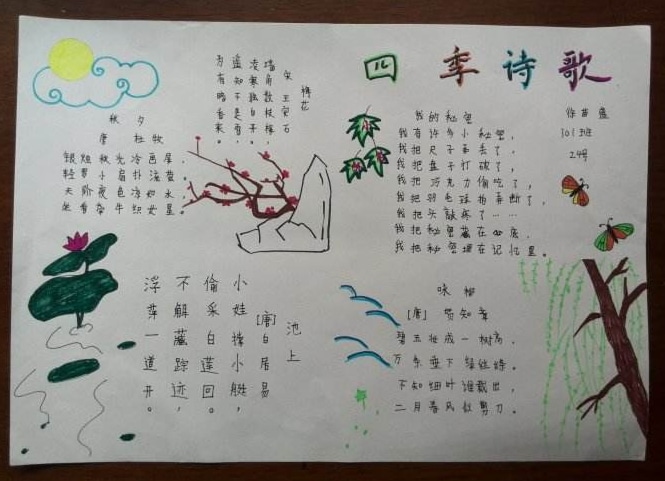 四季诗歌
301班
24号
梅花
宋 王安石
墙角数枝梅,
凌寒独自开。
遥知不是雪,
为有暗香来。
秋夕
唐 杜牧
银烛秋光冷画屏,
轻罗小扇扑流萤。
天阶夜色凉如水,
坐看牵牛织女星。
我的秘密
我有许多小秘密,
我把尺子弄丢了,
我把盘子打破了,
我把巧克力偷吃了,
我把羽毛球拍弄断了,
我把头敲疼了……
我把秘密藏在心底,
我把秘密埋在记忆里。
池上
[唐]白居易
小娃撑小艇,
偷采白莲回。
不解藏踪迹,
浮萍一道开。
咏柳
[唐] 贺知章
碧玉妆成一树高,
万条垂下绿丝绦。
不知细叶谁裁出,
二月春风似剪刀。